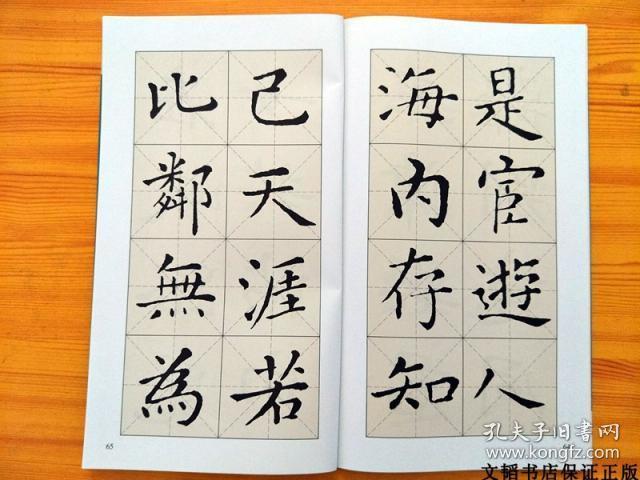 是宦遊人
海内存知
己天涯若
比鄰無為
65
孔夫子旧書网
www.kongfz.com
文韬书店保证正版